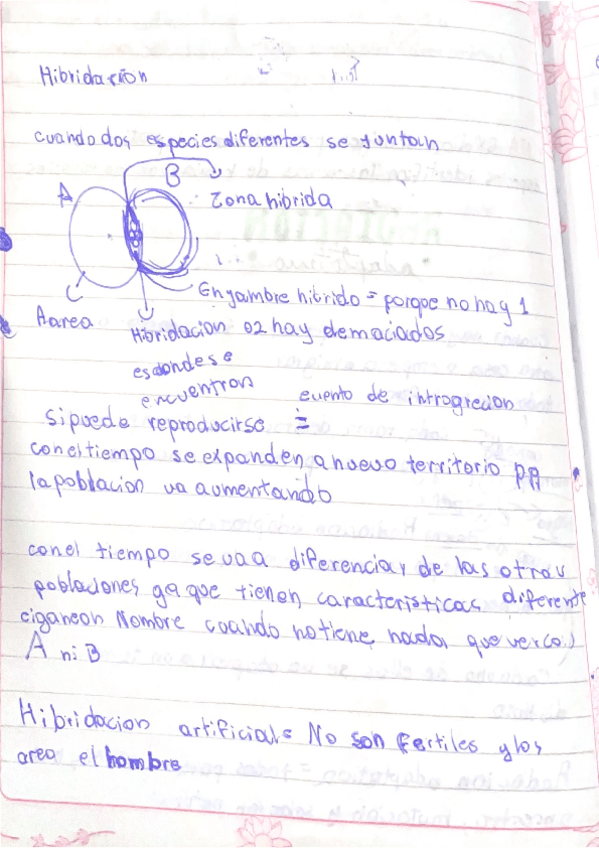 Hibridación
cuando dos especies diferentes se juntan
B
A
Zona hibrida
Enjambre hibrido = porque no hay 1
A area
Hibridacion o 2 hay demaciados
es donde se
encuentran
evento de introgrecion
si puede reproducirse =
con el tiempo se expanden a nuevo territorio
la poblacion va aumentando
con el tiempo se va a diferenciar de las otras
poblaciones ya que tienen caracteristicas diferente
Nombre cuando no tiene nada que ver con
A ni B
Hibridacion artificial = No son fertiles y los
area el hombre